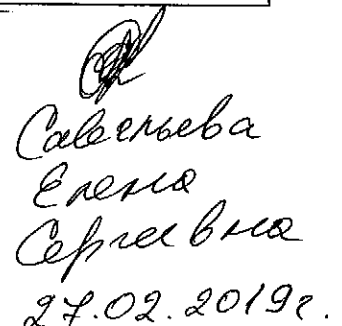 Савельева
Елена
Сергеевна
27.02.2019г.